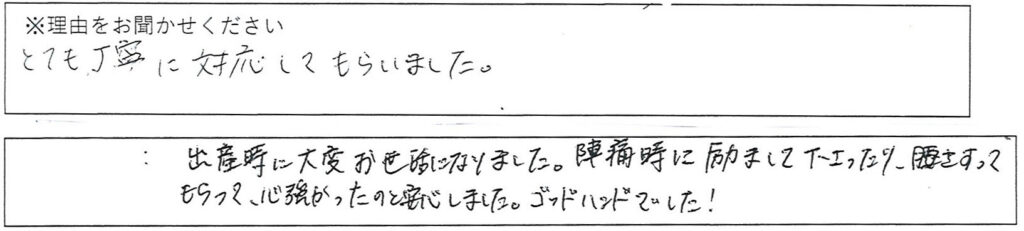 ※理由をお聞かせください
とても丁寧に対応してもらいました。
: 出産時に大変お世話になりました。陣痛時に励まして下さったり、腰さすって
もらって、心強かったのと安心しました。ゴッドハンドでした!